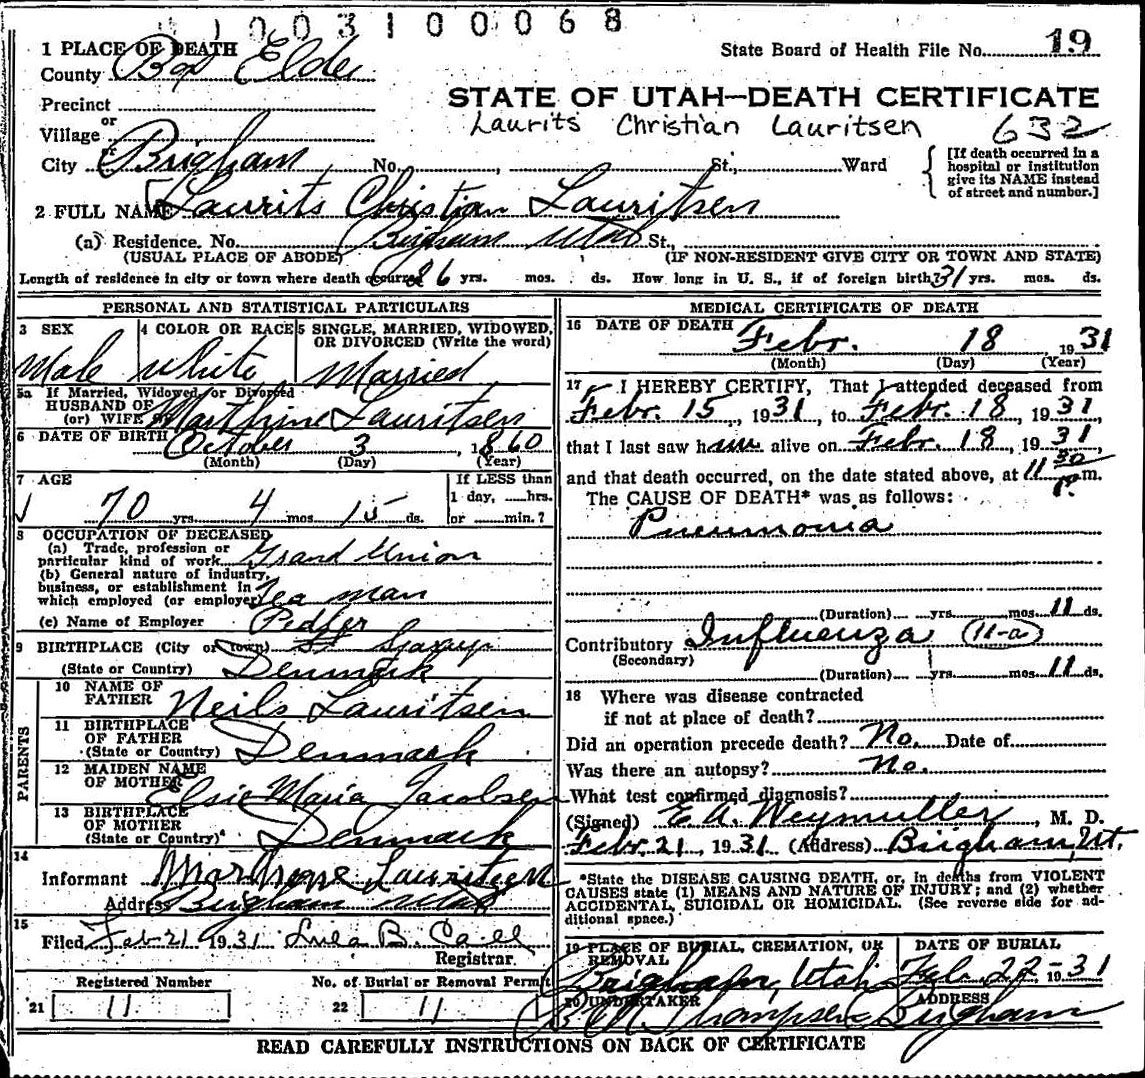 1003100068
1 PLACE OF DEATH
State Board of Health File No. 19
County Box Elder
Precinct
STATE OF UTAH—DEATH CERTIFICATE
or
Village
Laurits Christian Lauritsen 632
or
City Brigham No. , St., Ward
[If death occurred in a hospital or institution give its NAME instead of street and number.]
2 FULL NAME Laurits Christian Lauritsen
(a) Residence. No. Brigham Utah St.,
(USUAL PLACE OF ABODE) (IF NON-RESIDENT GIVE CITY OR TOWN AND STATE)
Length of residence in city or town where death occurred 26 yrs. mos. ds. How long in U. S., if of foreign birth? 31 yrs. mos. ds.
PERSONAL AND STATISTICAL PARTICULARS
3 SEX
Male
4 COLOR OR RACE
White
5 SINGLE, MARRIED, WIDOWED, OR DIVORCED (Write the word)
Married
5a If Married, Widowed, or Divorced
HUSBAND OF
(or) WIFE OF Marthine Lauritsen
6 DATE OF BIRTH October 3, 1860
(Month) (Day) (Year)
7 AGE
If LESS than
1 day, hrs.
or min.?
70 yrs. 4 mos. 15 ds.
8 OCCUPATION OF DECEASED
(a) Trade, profession or
particular kind of work Grand Union
(b) General nature of industry,
business, or establishment in
which employed (or employer) Tea man
(c) Name of Employer Pedler
9 BIRTHPLACE (City or Town)
(State or Country) Denmark
PARENTS
10 NAME OF
FATHER Neils Lauritsen
11 BIRTHPLACE
OF FATHER
(State or Country) Denmark
12 MAIDEN NAME
OF MOTHER Elsie Maria Jacobsen
13 BIRTHPLACE
OF MOTHER
(State or Country) Denmark
14
Informant Marthine Lauritsen
Address Brigham Utah
15
Filed Feb 21 1931 Lula B. Call
Registrar.
Registered Number No. of Burial or Removal Permit
21 11 22 11
MEDICAL CERTIFICATE OF DEATH
16 DATE OF DEATH
Febr. 18 1931
(Month) (Day) (Year)
17 I HEREBY CERTIFY, That I attended deceased from
Febr. 15, 1931, to Febr. 18, 1931,
that I last saw him alive on Febr. 18, 1931
and that death occurred, on the date stated above, at 11 30 P. m.
The CAUSE OF DEATH* was as follows:
Pneumonia
(Duration) yrs. mos. 11 ds.
Contributory Influenza (11-a)
(Secondary)
(Duration) yrs. mos. 11 ds.
18 Where was disease contracted
if not at place of death?
Did an operation precede death? No. Date of
Was there an autopsy? No.
What test confirmed diagnosis?
(Signed) E. A. Weymuller, M. D.
Febr. 21, 1931 (Address) Brigham, Ut.
*State the DISEASE CAUSING DEATH, or, in deaths from VIOLENT
CAUSES state (1) MEANS AND NATURE OF INJURY; and (2) whether
ACCIDENTAL, SUICIDAL OR HOMICIDAL. (See reverse side for ad-
ditional space.)
19 PLACE OF BURIAL, CREMATION, OR
REMOVAL
Brigham, Utah
DATE OF BURIAL
Feb. 22 1931
20 UNDERTAKER
Thompsen
ADDRESS
Brigham
READ CAREFULLY INSTRUCTIONS ON BACK OF CERTIFICATE